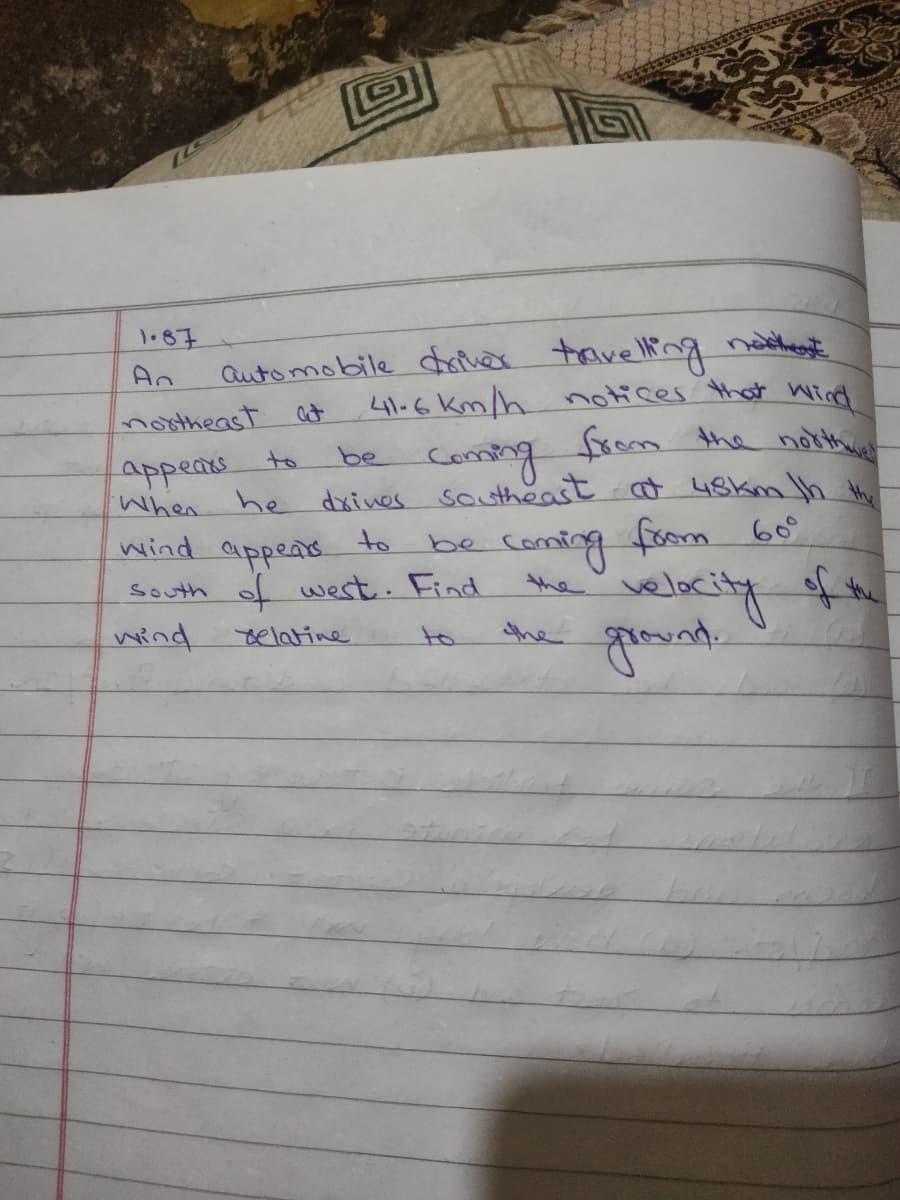 1.87
An automobile driver travelling
northeast at 41.6 km/h notices that wind
appears to be coming from the northwest
When he drives southeast at 48km/h the
wind appears to be coming from 60°
south of west. Find the velocity of the
wind relative to the ground.